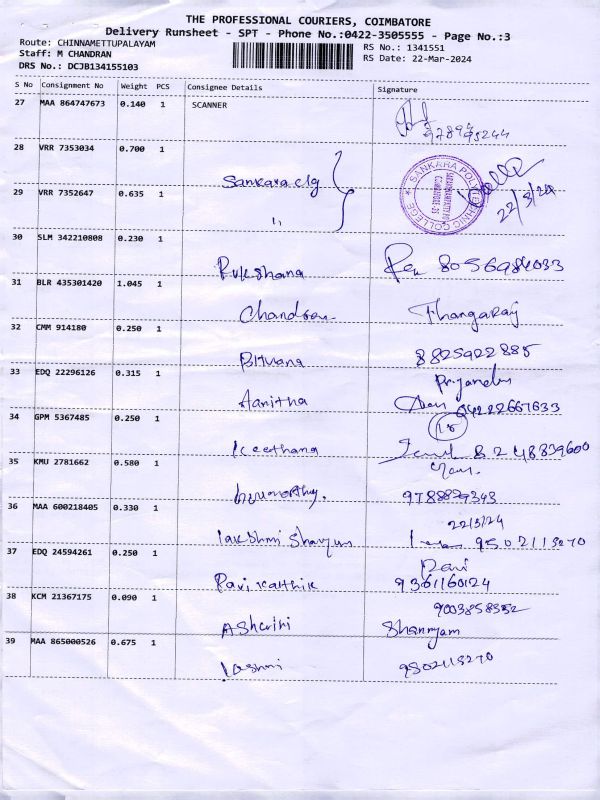 THE PROFESSIONAL COURIERS, COIMBATORE
Delivery Runsheet - SPT - Phone No.:0422-3505555 - Page No.:3
Route: CHINNAMETTUPALAYAM
RS No.: 1341551
Staff: M CHANDRAN
RS Date: 22-Mar-2024
DRS No.: DCJB134155103
S No Consignment No Weight PCS Consignee Details Signature
27 MAA 864747673 0.140 1 SCANNER
28 VRR 7353034 0.700 1
Sankara clg
SANKARA POLYTECHNIC COLLEGE
22/3/24
29 VRR 7352647 0.635 1
"
30 SLM 342210808 0.230 1
Rukshana 8056984033
31 BLR 435301420 1.045 1
Chandran Thangaraj
32 CMM 914180 0.250 1
Bhuvana 8825922885
33 EDQ 22296126 0.315 1
Priyanka
Aanitha 04222667633
34 GPM 5367485 0.250 1
18
Keethana 8248839600
35 KMU 2781662 0.580 1
9788829343
36 MAA 600218405 0.330 1
22/3/24
lakshmi 9502113270
37 EDQ 24594261 0.250 1
Ravi
Ravi Karthik 9361160124
38 KCM 21367175 0.090 1
9003858352
Ashwini
39 MAA 865000526 0.675 1
9502113270